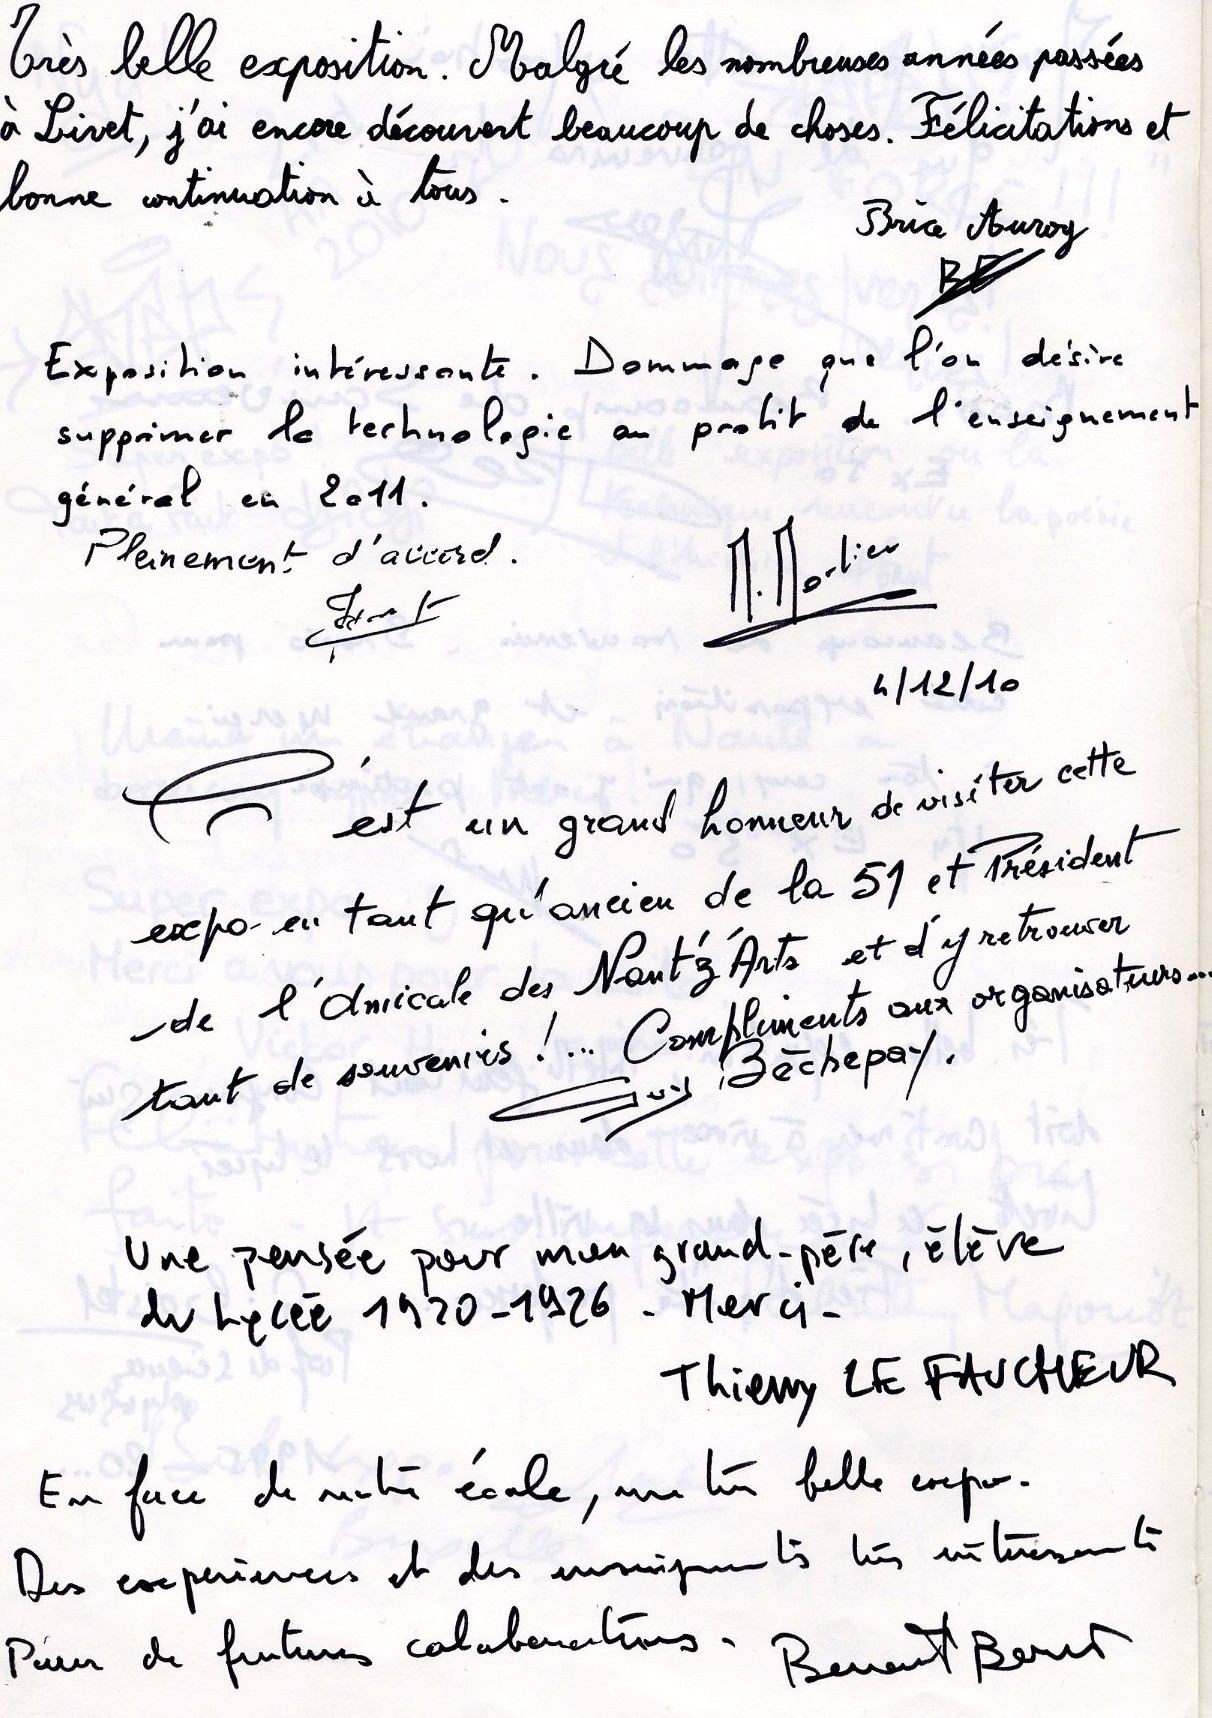 Très belle exposition. Malgré les nombreuses années passées
à Livet, j'ai encore découvert beaucoup de choses. Félicitations et
bonne continuation à tous.
Brice Auroy
Exposition intéressante. Dommage que l'on désire
supprimer la technologie au profit de l'enseignement
général en 2011.
Pleinement d'accord.
M. Morlier
4/12/10
C'est un grand honneur de visiter cette
expo en tant qu'ancien de la 51 et Président
de l'Amicale des Nant'z'Arts et d'y retrouver
tant de souvenirs !... Compliments aux organisateurs...
Guy Béchepay.
Une pensée pour mon grand-père, élève
du Lycée 1920-1926 - Merci -
Thierry LE FAUCHEUR
En face de notre école, une très belle expo.
Des expériences et des enseignants très intéressants
Pour de futures colaborations.